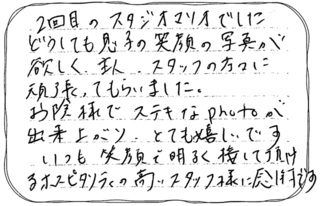 2回目のスタジオマリオでした
どうしても息子の笑顔の写真が
欲しく、主人、スタッフの方々に
頑張ってもらいました。
お陰様でステキなphotoが
出来上がり、とても嬉しいです
いつも笑顔で明るく接して頂け
るホスピタリティの高いスタッフ様に感謝です